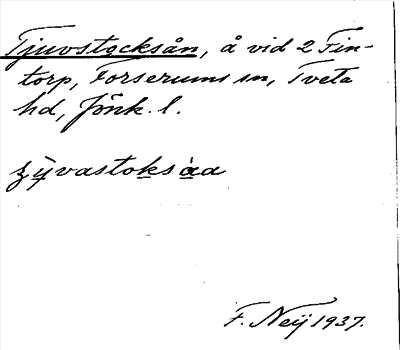 Tjuvstocksån, å vid 2 Fin-
torp, Forserums sn, Tveta
hd, Jönk. l.
ʒỳvastoksàa
F. Neij 1937.